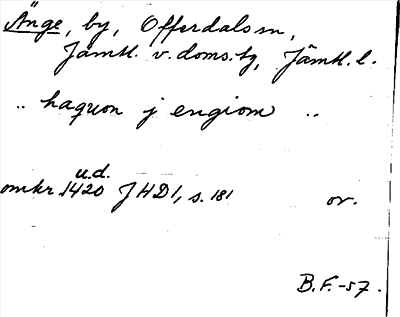 Änge, by, Offerdals sn,
Jämtl. v. doms.tg, Jämtl. l.
.. haquon j engiom ..
u.d.
omkr 1420 JHD 1, s. 181 or.
B.F.-57.